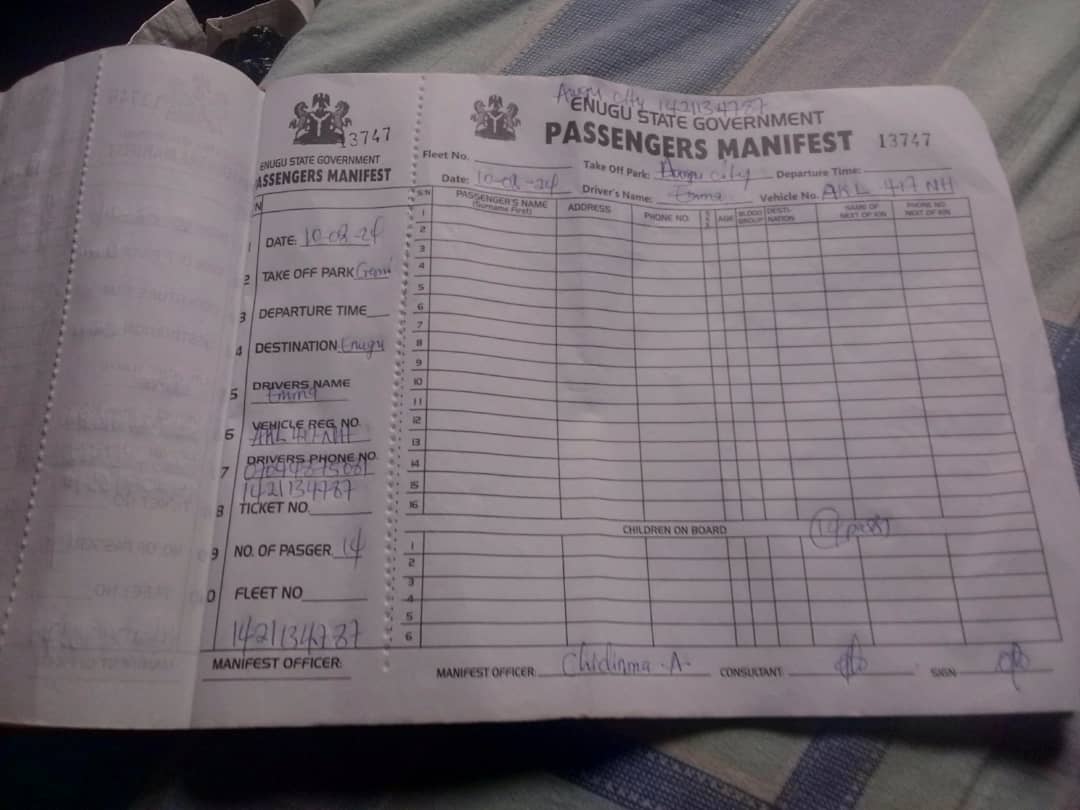 13747
ENUGU STATE GOVERNMENT
PASSENGERS MANIFEST
N
1 DATE: 10-08-24
2 TAKE OFF PARK
3 DEPARTURE TIME
4 DESTINATION Enugu
5 DRIVERS NAME
Emma
6 VEHICLE REG. NO.
AKL 417 NH
7 DRIVERS PHONE NO.
1421134787
8 TICKET NO.
9 NO. OF PASGER. 14
0 FLEET NO
1421134787
MANIFEST OFFICER:
1421134787
ENUGU STATE GOVERNMENT
PASSENGERS MANIFEST 13747
Fleet No. Take Off Park: City Departure Time:
Date: 10-08-24 Driver's Name: Emma Vehicle No. AKL 417 NH
S/N PASSENGER'S NAME (Surname First) ADDRESS PHONE NO. SEX AGE BLOOD GROUP DESTI-NATION NAME OF NEXT OF KIN PHONE NO. NEXT OF KIN
1
2
3
4
5
6
7
8
9
10
11
12
13
14
15
16
CHILDREN ON BOARD 14 pass
1
2
3
4
5
6
MANIFEST OFFICER: Chidinma . A . CONSULTANT: SIGN